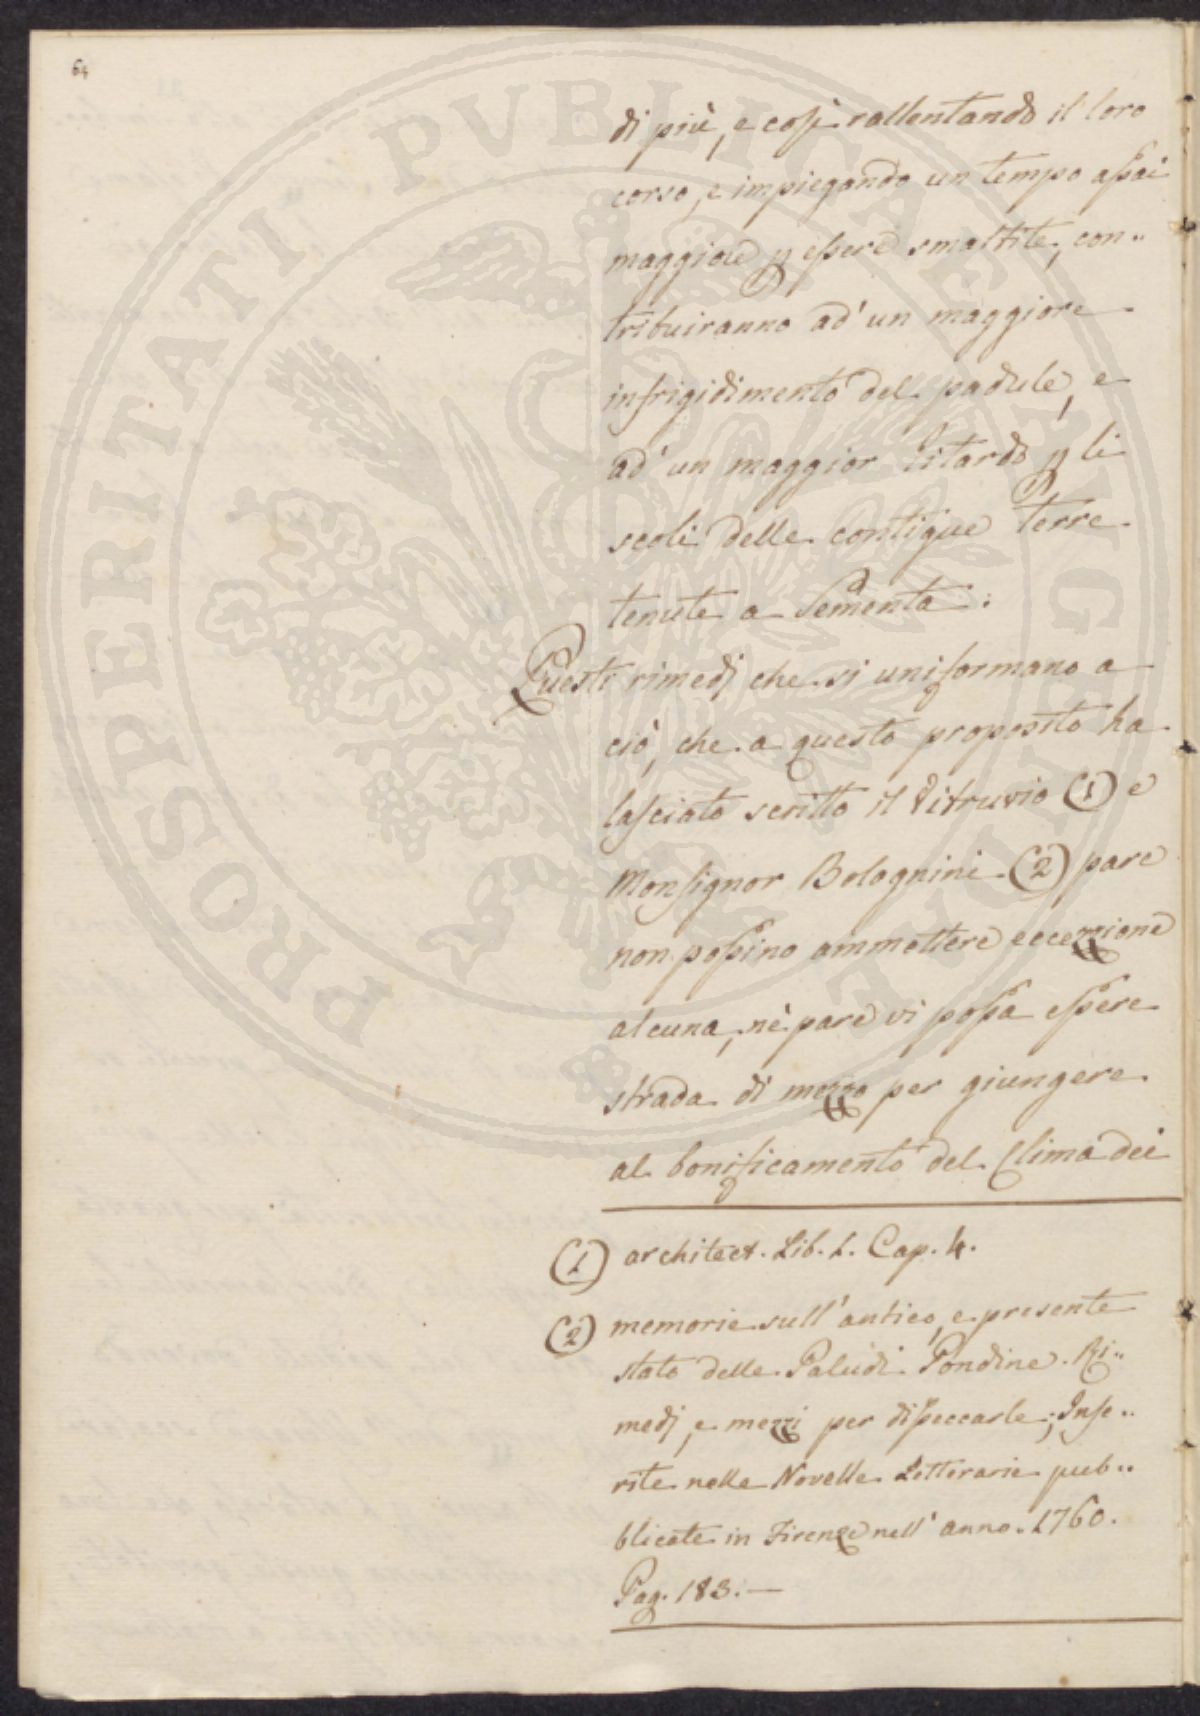 64
di più, e così rallentando il loro
corso, e impiegando un tempo assai
maggiore p essere smaltite, con..
tribuiranno ad' un maggiore
infrigidimento del padule, e
ad' un maggior ritardo p li
scoli delle contigue terre
tenute a Sementa.
Questi rimedj che si uniformano a
ciò, che a questo proposito ha
lasciato scritto il Vitruvio (1) e
Monsignor Bolognini (2) pare
non possino ammettere eccezzione
alcuna, nè pare vi possa essere
strada di mezzo per giungere
al bonificamento del Clima dei
(1) architect. Lib. 1. Cap. 4.
(2) memorie sull' antico, e presente
stato delle Paludi Pondine. Ri..
medj, e mezzi per diseccarle; Inse..
rite nelle Novelle Letterarie pub..
blicate in Firenze nell' anno. 1760.
Pag. 183. —
PROSPERITATI PVBLICAE AVGENDAE